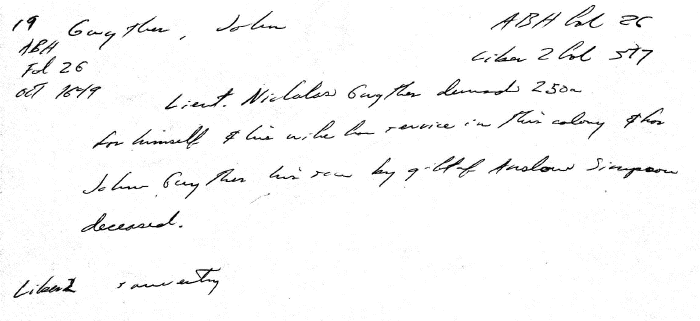 19 Guyther, John ABH fol 26
ABH Liber 2 fol 577
Fol 26
Oct 1649 Lieut. Nicholas Guyther demands 250a
for himself & his wife for service in this colony & for
John Guyther his son by gift of Anslow Simpson
deceased.
Liber 2 same entry